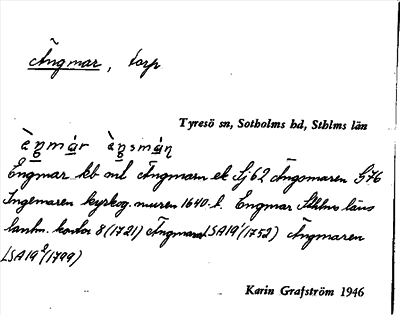 Ängmar, torp
Tyresö sn, Sotholms hd, Sthlms län
èŋmár èŋsmáŋ
Engmar kb ml Ängmarn ek Sj 62 Ängsmaren G 76
Ingemaren kyrkog. muren 1640-t. Engmar Sthlms läns
lantm. kontor 8 (1721) Ängmaren LSA 19¹ (1752) Ängmaren
LSA 19² (1799)
Karin Grafström 1946